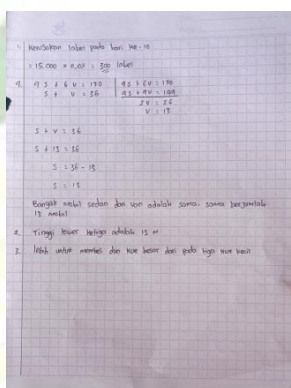 1. Kerusakan label pada hari ke-10
= 15.000 × 0,02 = 300 label
4. 4S + 6V = 170 | 4S + 6V = 170
S + V = 36 | 4S + 4V = 144
2V = 26
V = 13
S + V = 36
S + 13 = 36
S = 36 - 13
S = 13
Banyak mobil sedan dan van adalah sama-sama berjumlah
13 mobil
2. Tinggi tower ketiga adalah 13 M
3. lebih untuk membeli dua kue besar dari pada tiga kue kecil